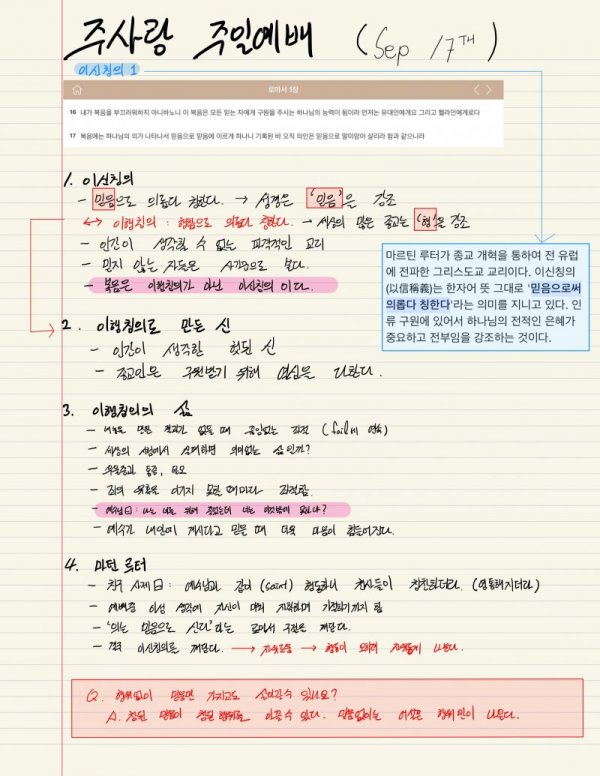 주사랑 주일예배 (Sep 17TH)
이신칭의 1
로마서 1장
16 내가 복음을 부끄러워하지 아니하노니 이 복음은 모든 믿는 자에게 구원을 주시는 하나님의 능력이 됨이라 먼저는 유대인에게요 그리고 헬라인에게로다
17 복음에는 하나님의 의가 나타나서 믿음으로 믿음에 이르게 하나니 기록된 바 오직 의인은 믿음으로 말미암아 살리라 함과 같으니라
1. 이신칭의
- 믿음으로 의롭다 칭한다. → 성경은 '믿음'은 강조
↔ 이행칭의 : 행함으로 의롭다 칭한다. → 세상의 많은 종교는 '행'을 강조
- 인간이 생각할 수 없는 파격적인 교리
- 믿지 않는 자들은 사기꾼으로 본다.
- 복음은 이행칭의가 아닌 이신칭의 이다.
마르틴 루터가 종교 개혁을 통하여 전 유럽
에 전파한 그리스도교 교리이다. 이신칭의
(以信稱義)는 한자어 뜻 그대로 '믿음으로써
의롭다 칭한다'라는 의미를 지니고 있다. 인
류 구원에 있어서 하나님의 전적인 은혜가
중요하고 전부임을 강조하는 것이다.
2. 이행칭의로 만든 신
- 인간이 생각한 헛된 신
- 종교인은 구원받기 위해 열심을 다한다.
3. 이행칭의의 삶
- 만든 결과가 없을 때 끊임없는 좌절 (fail의 연속)
- 세상의 시험에서 실패하면 의미없는 삶인가?
- 우울증과 통증,
- 죄의 유혹을 이기지 못할 때마다 좌절함.
- 예수님 曰 : 나는 너를 위해 죽었는데 너는 이것밖에 못하냐?
- 예수가 내안에 계시다고 믿을 때 더욱 마음이 힘들어진다.
4. 마틴 루터
- 천주 사제 曰 : 예수님과 같이 (saint) 행동하니 천사들이 칭찬하더라. (영통해지더라)
- 예배중 이런 생각에 자신이 더욱 지쳐하며 기절하기까지 함
- '의는 믿음으로 산다' 라는 로마서 구절을 깨닫다.
- 결국 이신칭의를 깨닫다. → 자유로움 → 행함이 오히려 자연스레 나온다.
Q. 행위없이 믿음만 가지고도 살아갈수 있나요?
A. 참된 믿음이 참된 행위를 이끌수 있다. 믿음없이는 어설픈 행위만이 나온다.